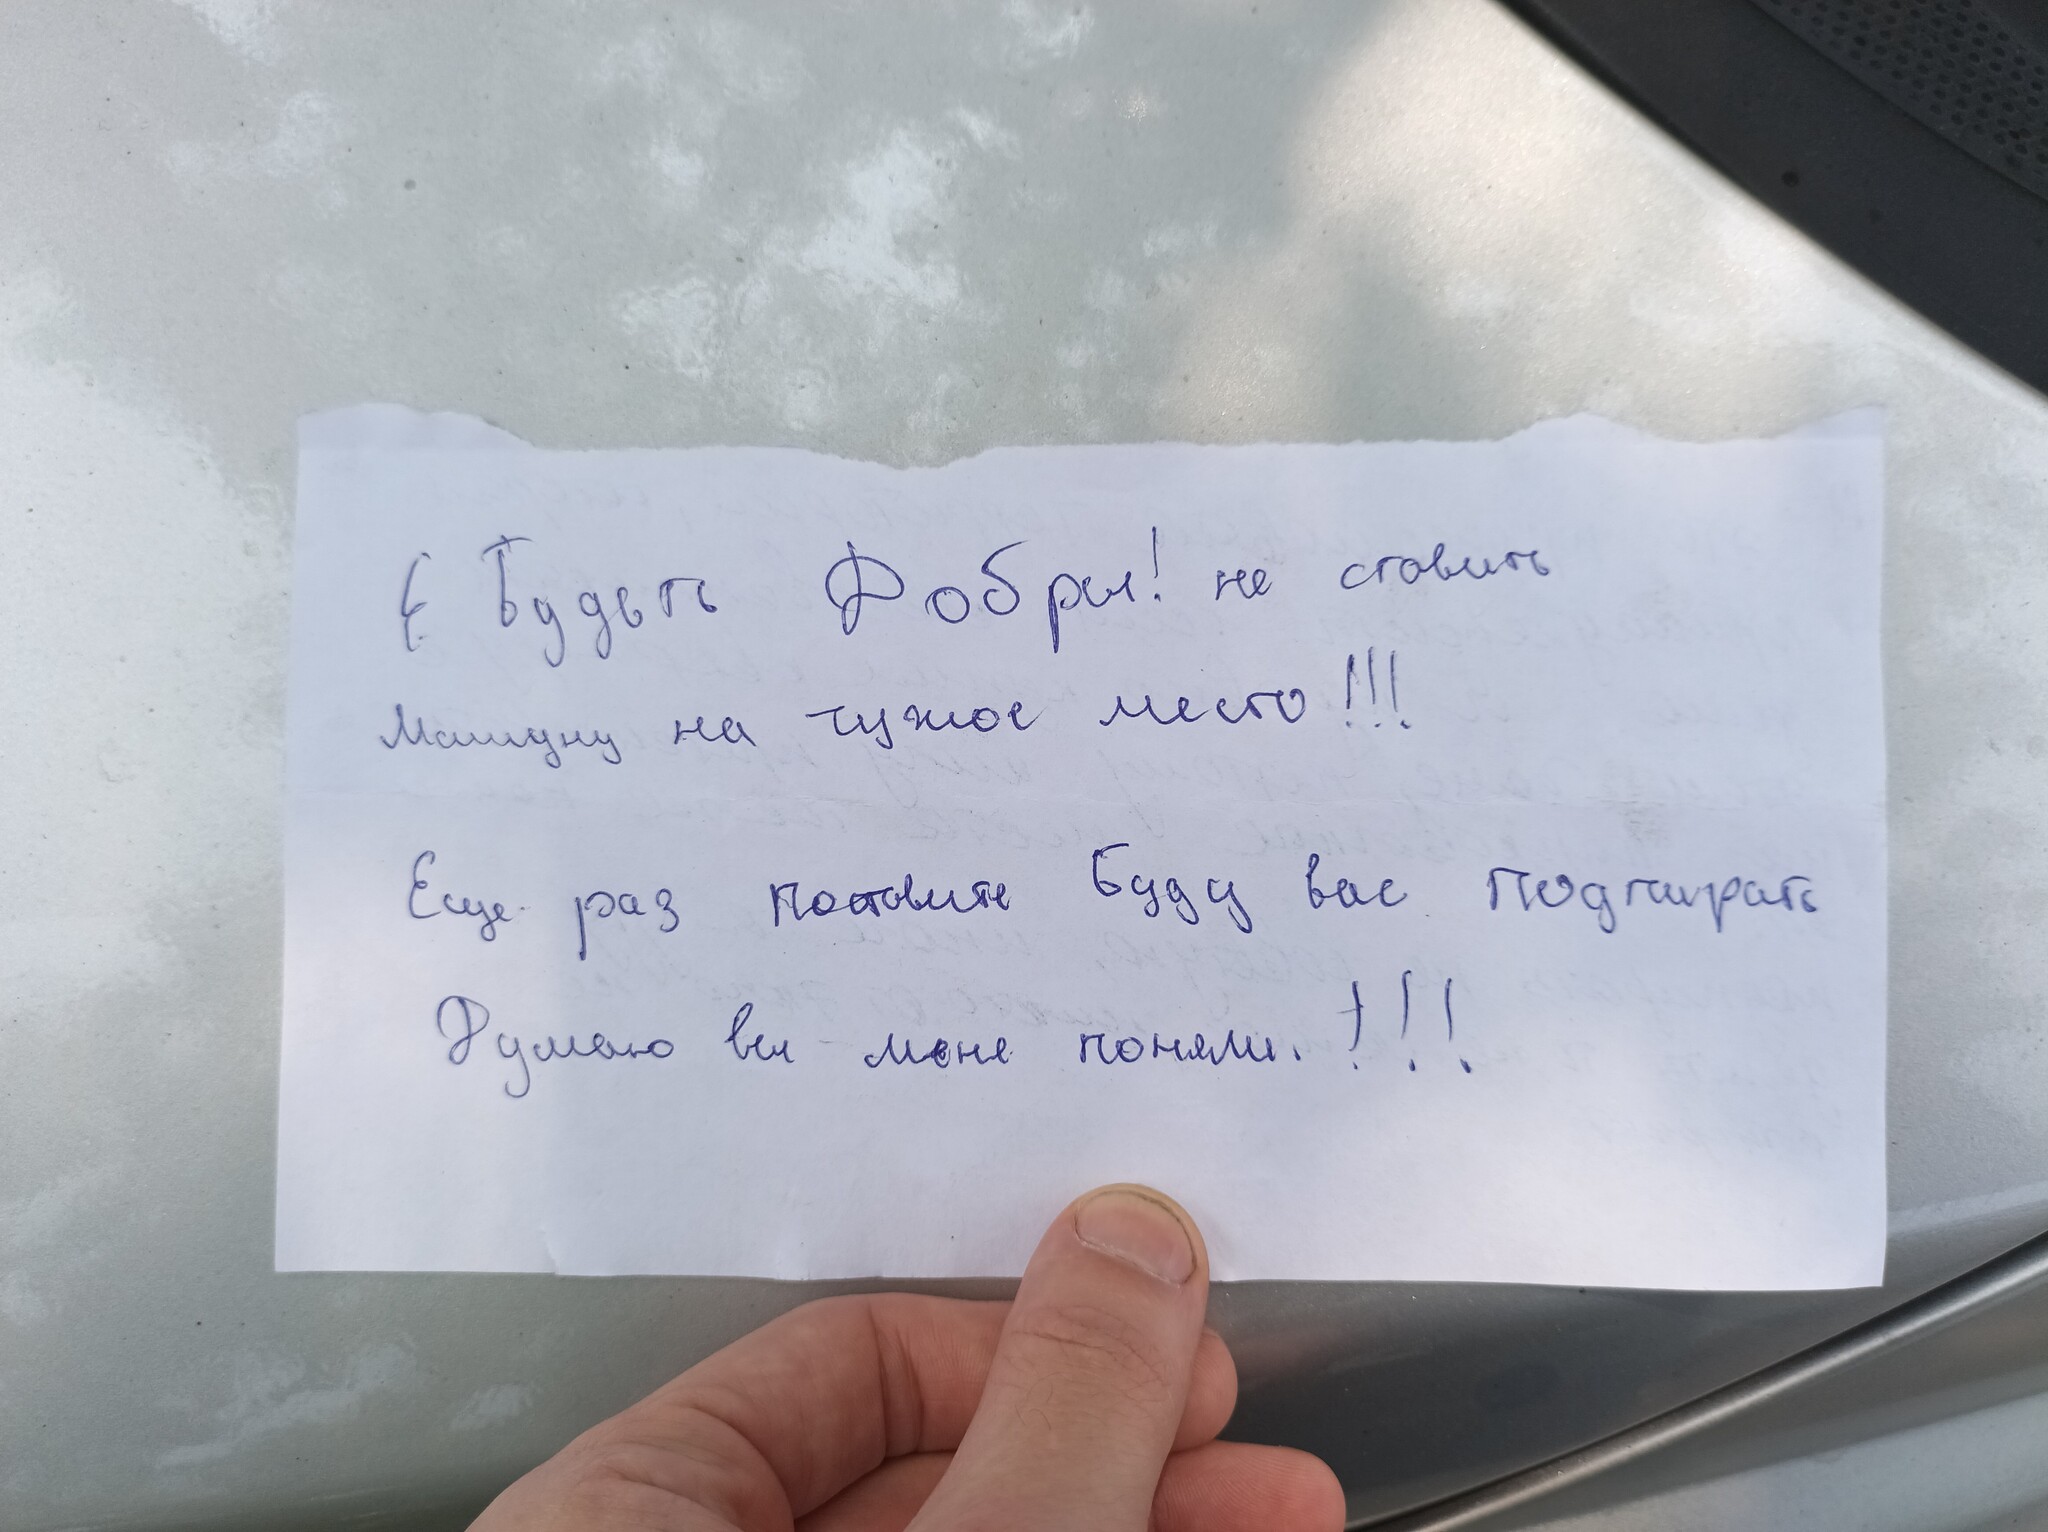 Будьть Добры! не ставить
Машуну на чужое место!!!
Еще раз поставите Буду вас подпирать
Думаю вы меня поняли.!!!